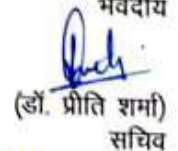 भवदीय
(डॉ. प्रीति शर्मा)
सचिव